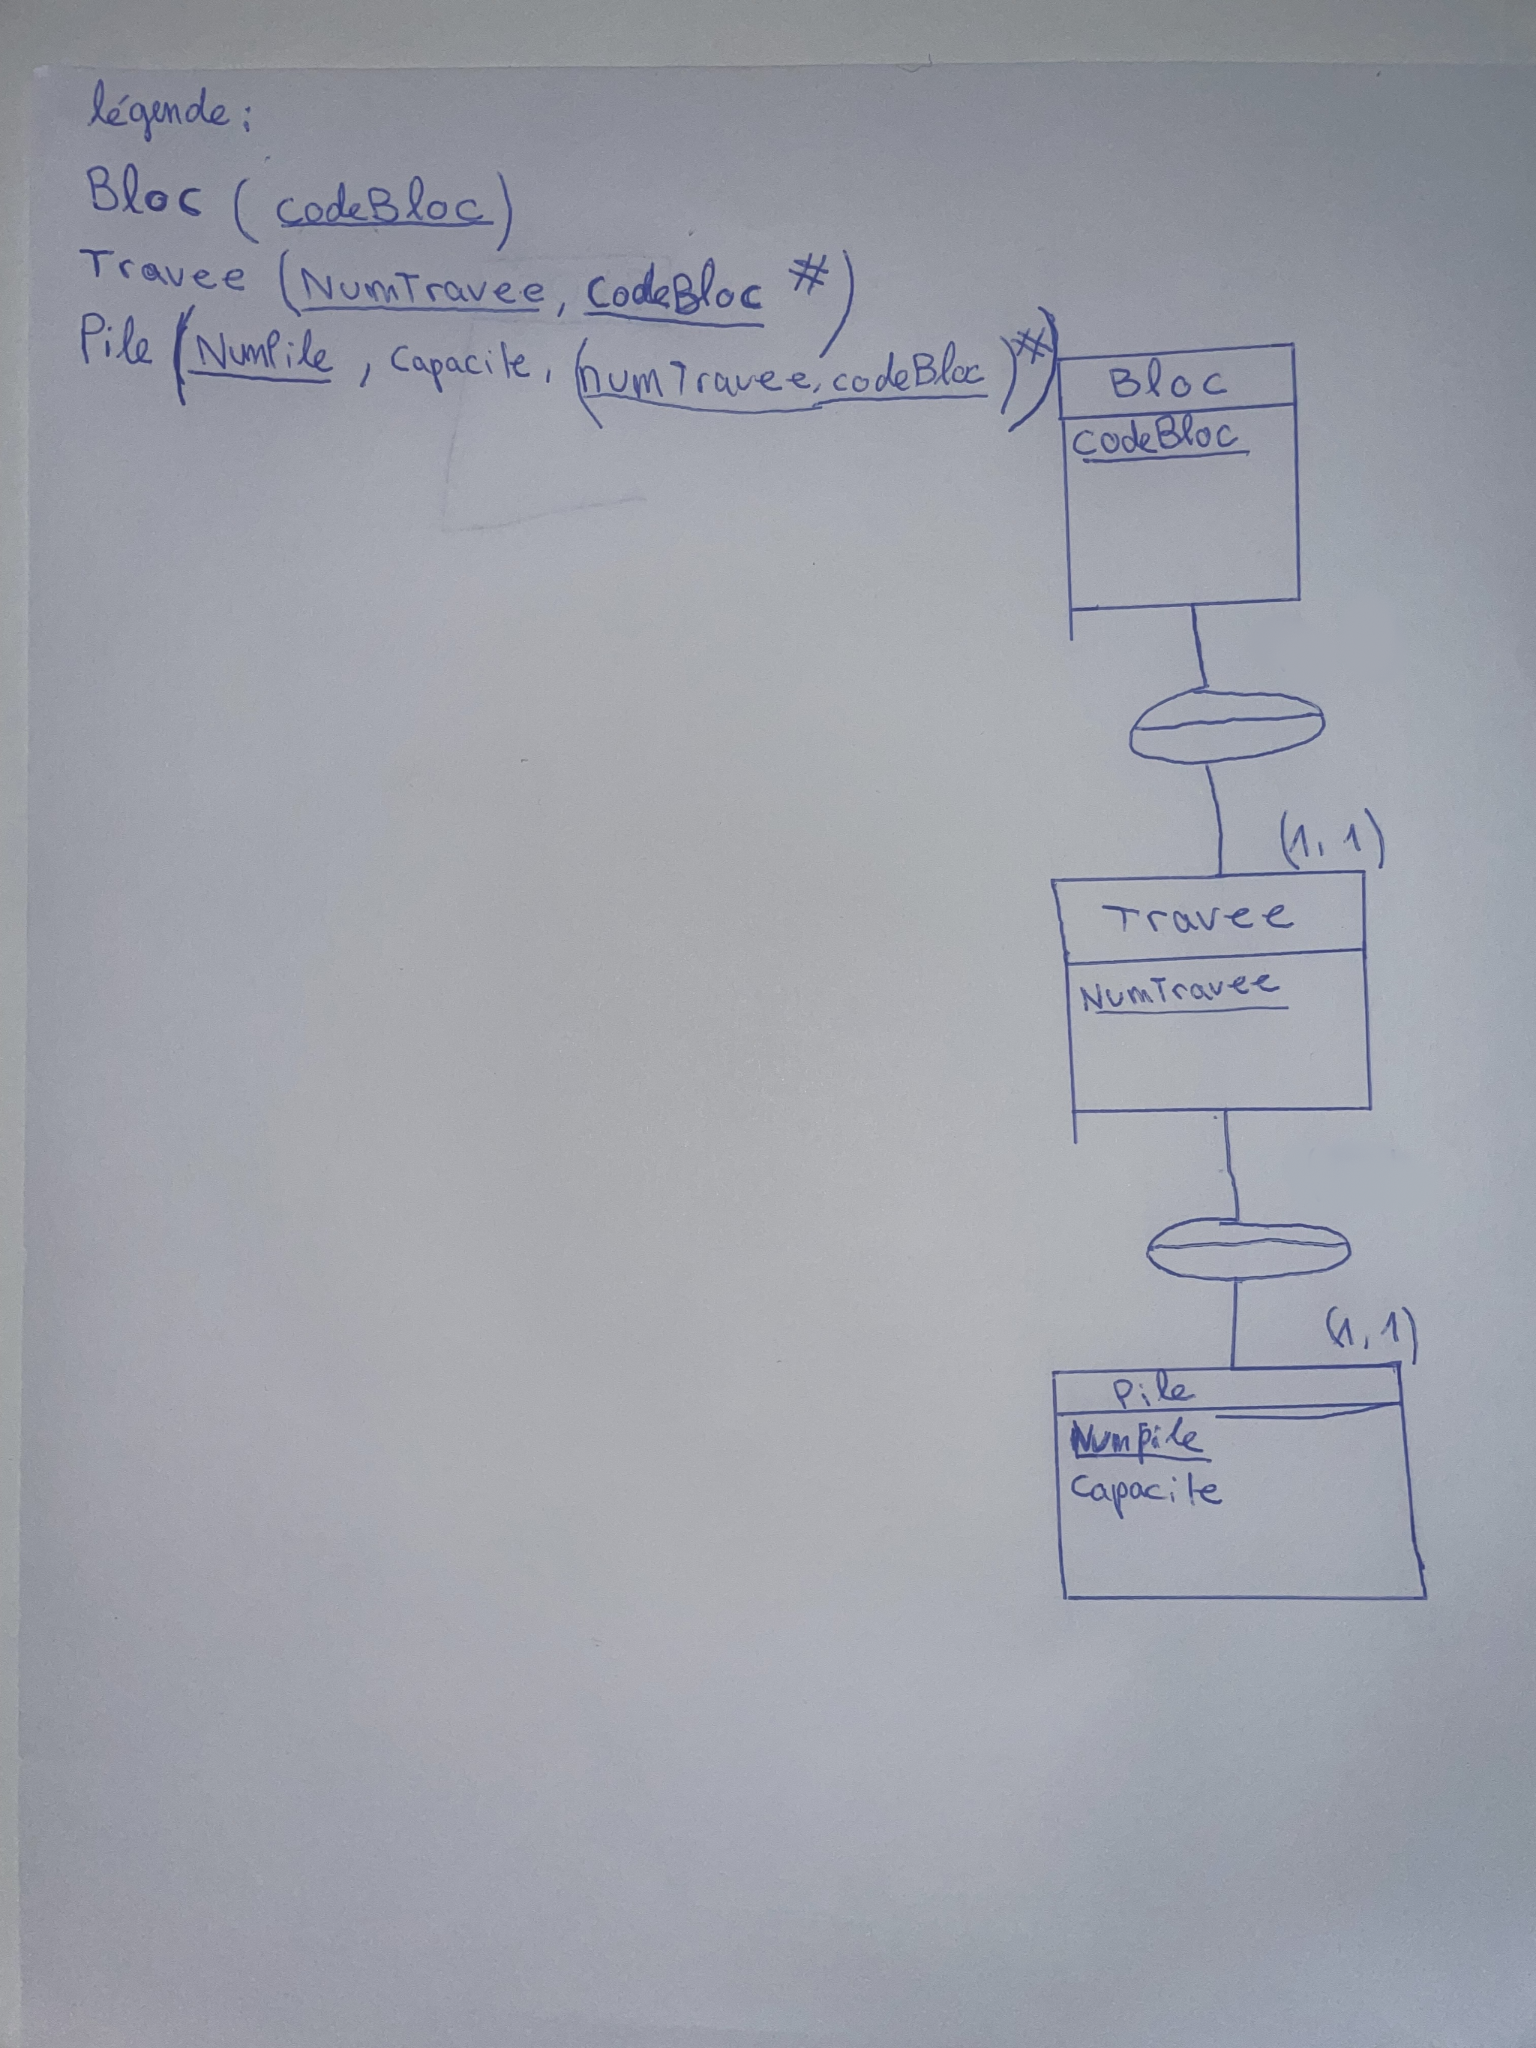 légende :
Bloc ( codeBloc )
Travee ( NumTravee, CodeBloc # )
Pile ( NumPile, Capacite, (numTravee, codeBloc )# )
Bloc
codeBloc
(1, 1)
Travee
NumTravee
(1, 1)
Pile
NumPile
Capacite